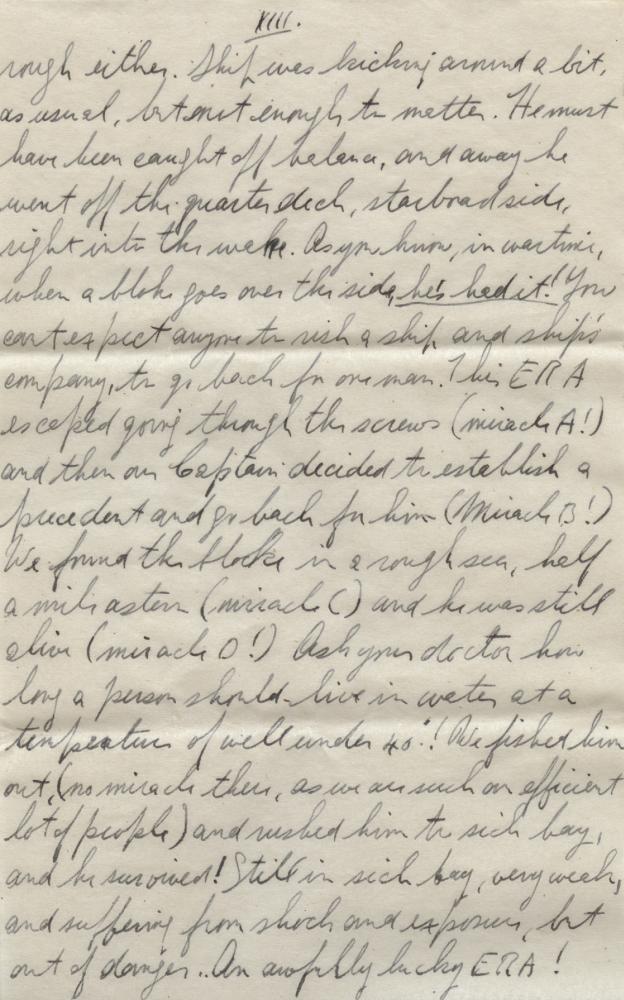 XIII.
rough either. Ship was kicking around a bit,
as usual, but not enough to matter. He must
have been caught off balance, and away he
went off the quarterdeck, starboard side,
right into the wake. As you know, in wartime,
when a bloke goes over the side, he's had it! You
cant expect anyone to risk a ship and ship's
company, to go back for one man. This ERA
escaped going through the screws (miracle A!)
and then our Captain decided to establish a
precedent and go back for him (Miracle B!)
We found the bloke in a rough sea, half
a mile astern (miracle C) and he was still
alive (miracle D!) Ask your doctor how
long a person should live in water at a
temperature of well under 40°! We fished him
out, (no miracle there, as we are such an efficient
lot of people) and rushed him to sick bay,
and he survived! Still in sick bay, very weak,
and suffering from shock and exposure, but
out of danger.. An awfully lucky ERA!